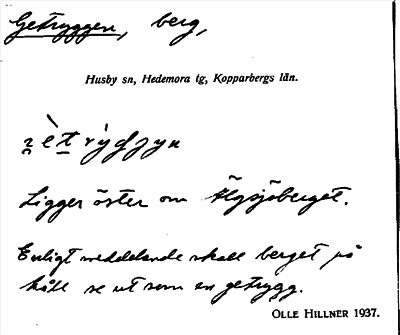 Getryggen, berg,
Husby sn, Hedemora tg, Kopparbergs län.
Ligger öster om Älgsjöberget.
Enligt meddelande skall berget på
håll se ut som en getrygg.
OLLE HILLNER 1937.